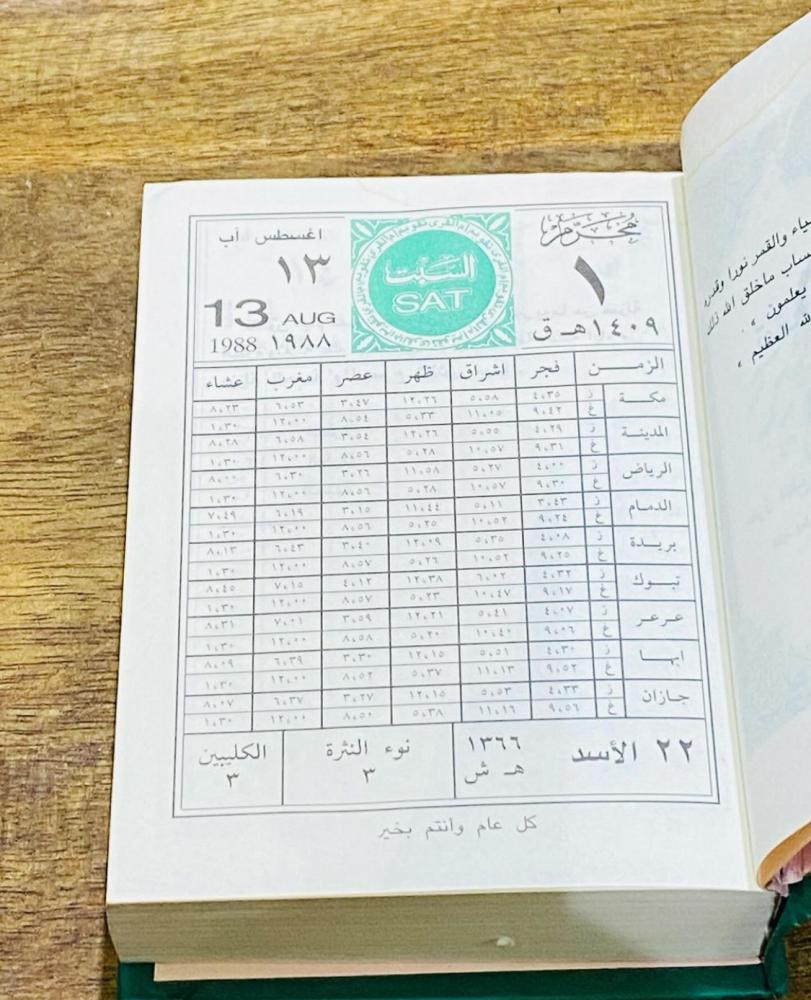 محرم
١
١٤٠٩ هـ ق
تقويم أم القرى
السبت
SAT
اغسطس آب
١٣
13 AUG
1988 ١٩٨٨
الزمن فجر اشراق ظهر عصر مغرب عشاء
مكة ز ٤،٣٥ ٥،٥٨ ١٢،٢٦ ٣،٤٧ ٦،٥٣ ٨،٢٣
غ ٩،٤٢ ١١،٠٥ ٥،٣٣ ٨،٥٤ ١٢،٠٠ ١،٣٠
المدينة ز ٤،٢٩ ٥،٥٥ ١٢،٢٦ ٣،٥٤ ٦،٥٨ ٨،٢٨
غ ٩،٣١ ١٠،٥٧ ٥،٢٨ ٨،٥٦ ١٢،٠٠ ١،٣٠
الرياض ز ٤،٠٠ ٥،٢٧ ١١،٥٨ ٣،٢٦ ٦،٣٠ ٨،٠٠
غ ٩،٣٠ ١٠،٥٧ ٥،٢٨ ٨،٥٦ ١٢،٠٠ ١،٣٠
الدمام ز ٣،٤٣ ٥،١١ ١١،٤٤ ٣،١٥ ٦،١٩ ٧،٤٩
غ ٩،٢٤ ١٠،٥٢ ٥،٢٥ ٨،٥٦ ١٢،٠٠ ١،٣٠
بريدة ز ٤،٠٨ ٥،٣٥ ١٢،٠٩ ٣،٤٠ ٦،٤٣ ٨،١٣
غ ٩،٢٥ ١٠،٥٢ ٥،٢٦ ٨،٥٧ ١٢،٠٠ ١،٣٠
تبوك ز ٤،٣٢ ٦،٠٢ ١٢،٣٨ ٤،١٢ ٧،١٥ ٨،٤٥
غ ٩،١٧ ١٠،٤٧ ٥،٢٣ ٨،٥٧ ١٢،٠٠ ١،٣٠
عرعر ز ٤،٠٧ ٥،٤١ ١٢،٢١ ٣،٥٩ ٧،٠١ ٨،٣١
غ ٩،٠٦ ١٠،٤٠ ٥،٢٠ ٨،٥٨ ١٢،٠٠ ١،٣٠
ابها ز ٤،٣٠ ٥،٥١ ١٢،١٥ ٣،٣٠ ٦،٣٩ ٨،٠٩
غ ٩،٥٢ ١١،١٣ ٥،٣٧ ٨،٥٢ ١٢،٠٠ ١،٣٠
جازان ز ٤،٣٣ ٥،٥٣ ١٢،١٥ ٣،٢٧ ٦،٣٧ ٨،٠٧
غ ٩،٥٦ ١١،١٦ ٥،٣٨ ٨،٥٠ ١٢،٠٠ ١،٣٠
٢٢ الأسد
١٣٦٦
هـ ش
نوء النثرة
٣
الكليبين
٣
كل عام وانتم بخير
والقمر نورا
ماخلق الله
يعلمون ،
العظيم ،